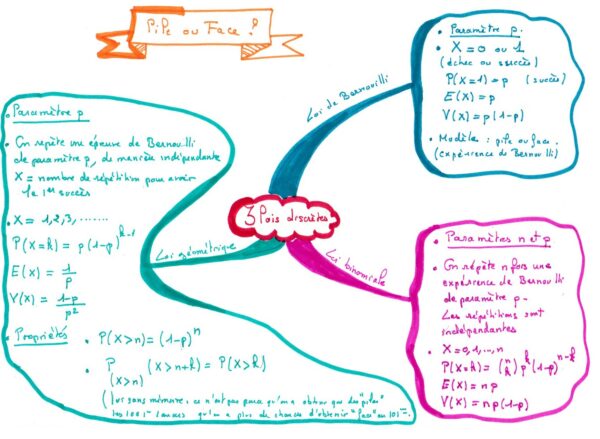 Pile ou Face ?
3 Lois discrètes
Loi de Bernouilli
Paramètre p.
X = 0 ou 1
(échec ou succès)
P(X=1) = p (succès)
E(X) = p
V(X) = p(1-p)
Modèle : pile ou face.
(expérience de Bernoulli)
Loi binomiale
Paramètres n et p
On répète n fois une
expérience de Bernoulli
de paramètre p.
Les répétitions sont
indépendantes
X = 0,1,..,n
P(X=k) = (n k) p^k (1-p)^{n-k}
E(X) = np
V(X) = np(1-p)
Loi géométrique
Paramètre p
On répète une épreuve de Bernoulli
de paramètre p, de manière indépendante
X = nombre de répétition pour avoir
le 1er succès
X = 1,2,3,.......
P(X=k) = p(1-p)^{k-1}
E(X) = 1/p
V(X) = 1-p/p²
Propriétés
P(X>n) = (1-p)^n
P(X>n) (X>n+k) = P(X>k)
(Loi sans mémoire, ce n'est pas parce qu'on a obtenu que des "piles"
les 100 1ers lancers qu'on a plus de chances d'obtenir "face" au 101